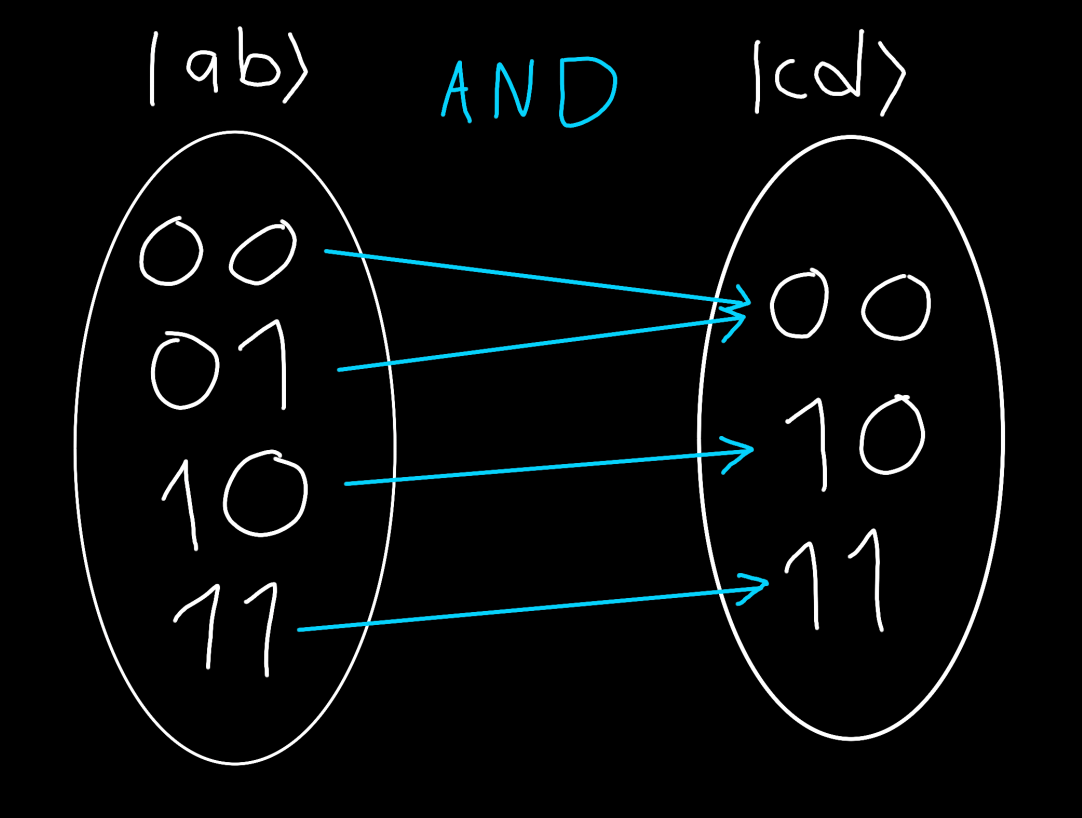 |ab⟩ AND |cd⟩
00
01
10
11
00
10
11